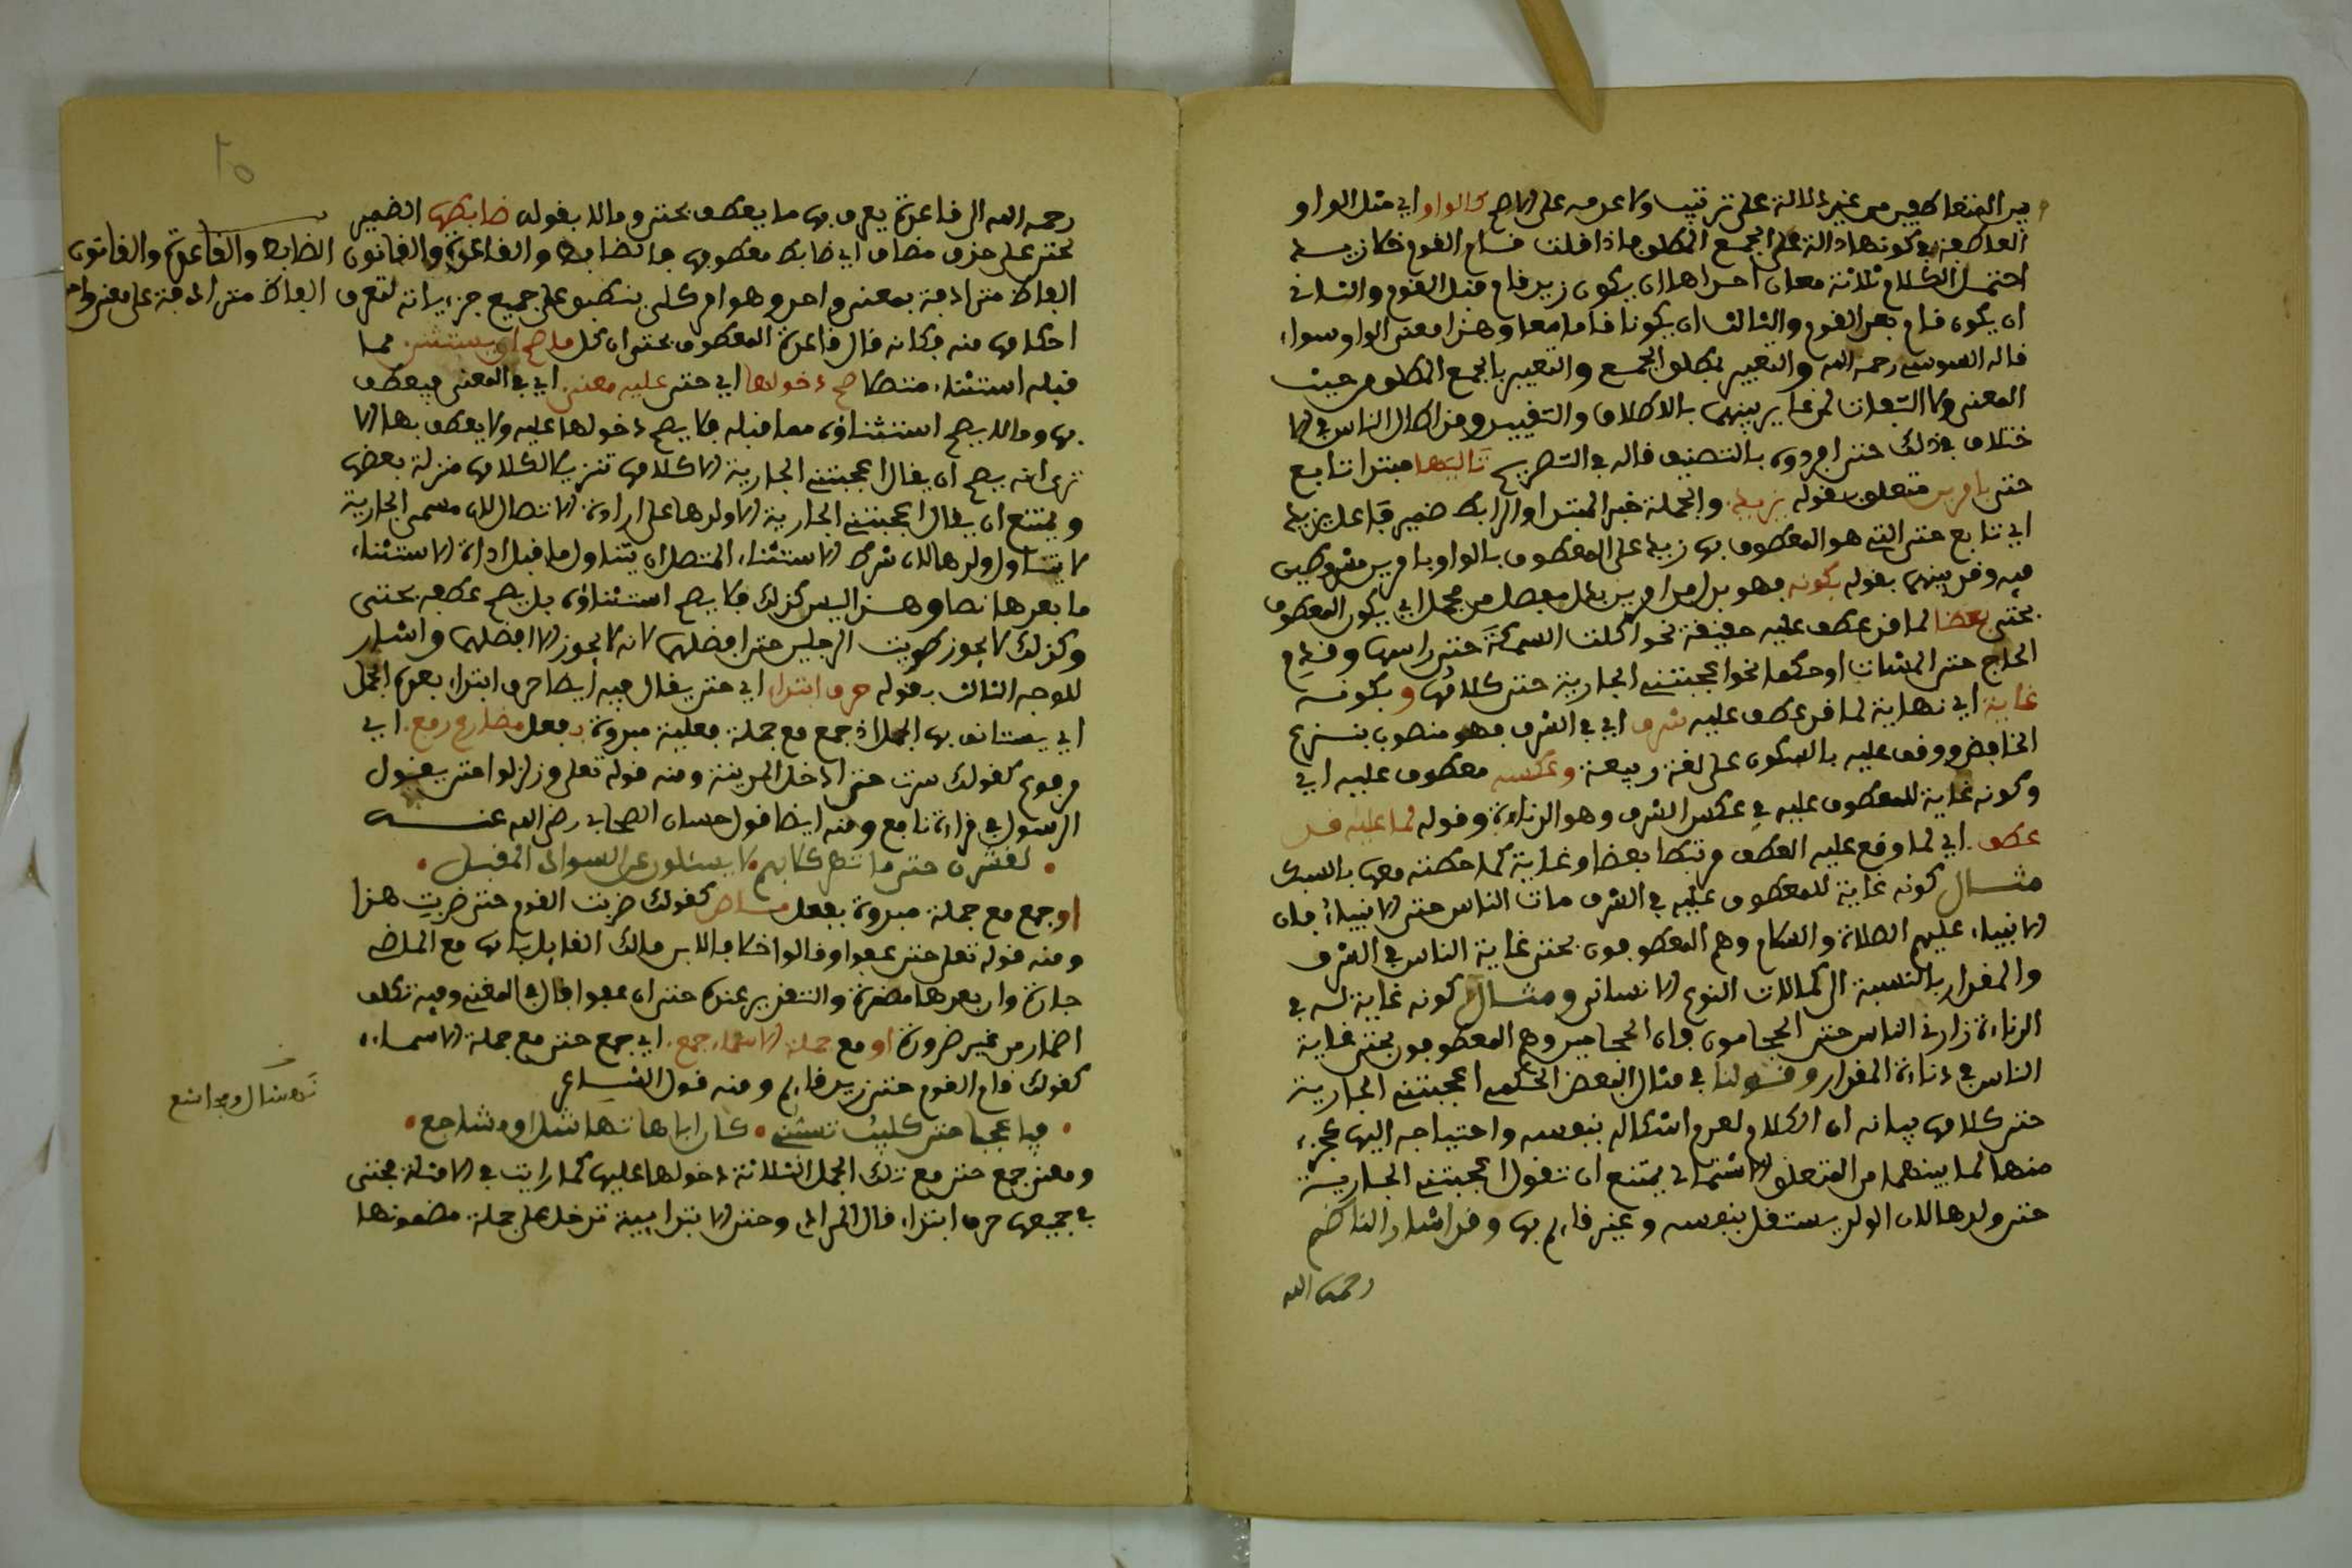 بين المتعاطفين من غير دلالة على ترتيب ولا عدمه على الاصح كالواو اي مثل الواو
العاطفة في كونها دالة على الجمع المطلق فاذا قلت قام القوم فكان زيد
احتمل الكلام ثلاثة معان احداها ان يكون زيد قام قبل القوم والثاني
ان يكون قام بعد القوم والثالث ان يكونا قاما معا وهذا معنى الواو سواء
قاله السوسي رحمه الله والتعبير بمطلق الجمع والتعبير بالجمع المطلق من حيث
المعنى ولا التفات لمن غاير بينهما بالاطلاق والتقييد وقد اطال الناس في الا
ختلاف في ذلك حتى افردوه بالتصنيف قاله في التصريح تاليها مبتدا تابع
حتى بامرين متعلق بقوله يزيد والجملة خبر المبتدا والرابط ضمير فاعل يزيد
اي تابع حتى التي هو المعطوف بها زيد على المعطوف بالواو بامرين مشروطين
فيه وقد بينهما بقوله بكونه فهو بدل من امرين بدل مفصل من مجمل اي يكون المعطوف
بحتى بعضا لما قد عطف عليه حقيقة نحو اكلت السمكة حتى راسها وقدم
الحاج حتى المشات او حكما نحو اعجبتني الجارية حتى كلامها وبكونه
غاية اي نهاية لما قد عطف عليه شرف اي في الشرف فهو منصوب بنزع
الخافض ووقف عليه بالسكون على لغة ربيعة وعكسه معطوف عليه اي
وكونه غاية للمعطوف عليه في عكس الشرف وهو الدناءة وقوله لما عليه قد
عطف اي لما وقع عليه العطف مرتبطا بعضا وغاية كما حكته معه بالسبك
مثال كونه غاية للمعطوف عليه في الشرف مات الناس حتى الانبياء فان
الانبياء عليهم الصلاة والسلام وهم المعطوفون بحتى غاية الناس في الشرف
والمقدار بالنسبة الى كمالات النوع الانساني ومثال كونه غاية له في
الدناءة زارني الناس حتى الحجامون فان الحجامين وهم المعطوفون بحتى غاية
الناس في دناءة المقدار وقولنا في مثال البعض الحكمي اعجبتني الجارية
حتى كلامها بيانه ان الكلام لعدم استقلاله بنفسه واحتياجه اليها كجزء
منها لما بينهما من التعلق الاشتمالي يمتنع ان تقول اعجبتني الجارية
حتى ولدها لان الولد يستقل بنفسه وغير قائم بها وقد اشار الناظم
رحمه الله
٢٥
رحمه الله الى قاعدة يعرف بها ما يعطف بحتى وما لا بقوله ضابطها الضمير
لحتى على حذف مضاف اي ضابط معطوفها فالضابط والقاعدة والقانون الضابط والقاعدة والقانون
الفاظ مترادفة بمعنى واحد وهو امر كلي ينطبق على جميع جزئياته لتعرف الفاظ مترادفة على معنى واحد
احكامها منه فكانه قال قاعدة المعطوف بحتى ان كل ما صح ان يستثنى مما
قبله استثناء متصلا صح دخولها اي حتى عليه معنى اي في المعنى فيعطف
بها وما لا يصح استثناؤه مما قبله فلا يصح دخولها عليه ولا يعطف بها الا
ترى انه يصح ان يقال اعجبتني الجارية الا كلامها تنزيلا لكلامها منزلة بعضها
ويمتنع ان يقال اعجبتني الجارية الا ولدها على ارادة الاتصال لان مسمى الجارية
لا يتناول ولدها لان شرط الاستثناء المتصل ان يتناول ما قبل اداة الاستثناء
ما بعدها نصا وهذا ليس كذلك فلا يصح استثناؤه بل يصح عطفه بحتى
وكذلك لا يجوز ضربت الرجلين حتى افضلهما لانه لا يجوز الا افضلهما واشار
للوجه الثالث بقوله حرف ابتداء اي حتى يقال فيه ايضا حرف ابتداء بعده الجمل
اي يستانف بها الجمل اذ جمع مع جملة فعلية مبدوة بفعل مضارع رفع اي
مرفوع كقولك سرت حتى ادخل المدينة ومنه قوله تعلى وزلزلوا حتى يقول
الرسول في قراءة نافع ومنه ايضا قول حسان الصحابي رضي الله عنه
• يغشون حتى ما تهر كلابهم • لا يسئلون عن السواد المقبل •
او جمع مع جملة مبدوة بفعل ماض كقولك ضربت القوم حتى ضربت هذا
ومنه قوله تعلى حتى عفوا وقالوا خلافا لابن مالك القايل بانها مع الماضي
جارة وان بعدها مضمرة والتقدير عنده حتى ان عفوا قال في المغني وفيه تكلف
اضمار من غير ضرورة او مع جملة الاسماء جمع اي جمع حتى مع جملة الاسماء
كقولك قام القوم حتى زيد قايم ومنه قول الشاعر
• فيا عجبا حتى كليب تسبني • كان اباها نهشل او مجاشع •
نهشل ومجاشع
ومعنى جمع حتى مع تلك الجمل الثلاثة دخولها عليها كما رايت في الامثلة فحتى
في جميعها حرف ابتداء قال المرادي وحتى الابتدايية تدخل على جملة مضمونها